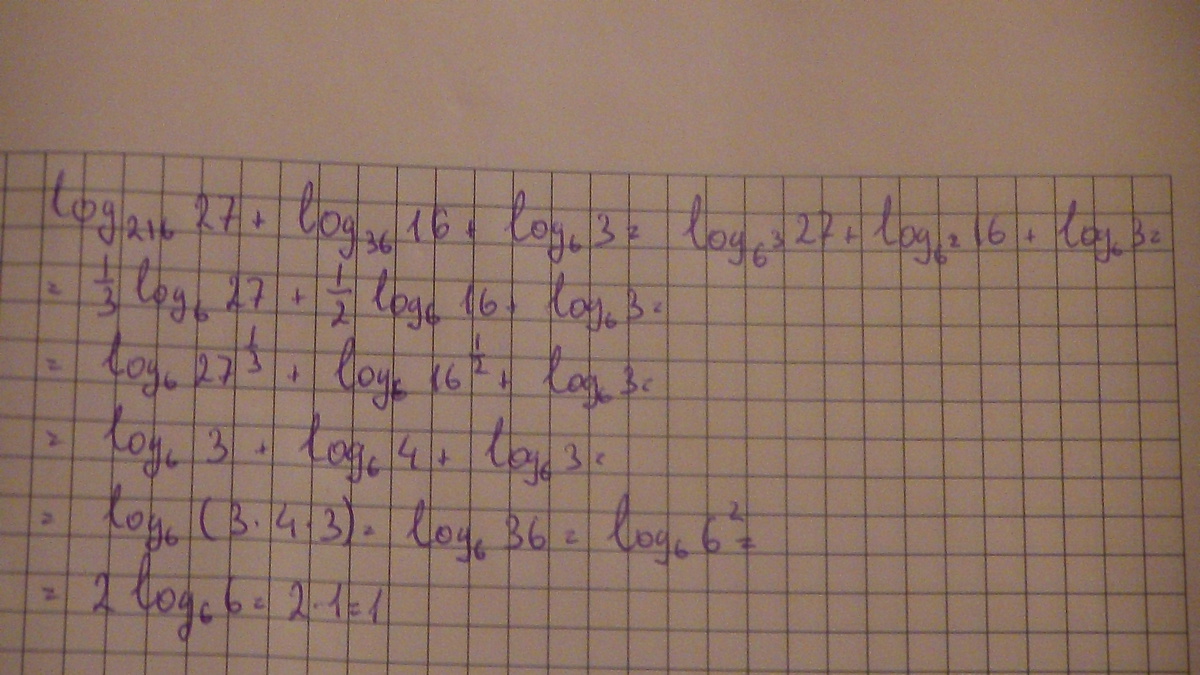 log₂₁₆ 27 + log₃₆ 16 + log₆ 3 = log₆³ 27 + log₆² 16 + log₆ 3 =
= 1/3 log₆ 27 + 1/2 log₆ 16 + log₆ 3 =
= log₆ 27^(1/3) + log₆ 16^(1/2) + log₆ 3 =
= log₆ 3 + log₆ 4 + log₆ 3 =
= log₆ (3·4·3) = log₆ 36 = log₆ 6² =
= 2 log₆ 6 = 2·1=1